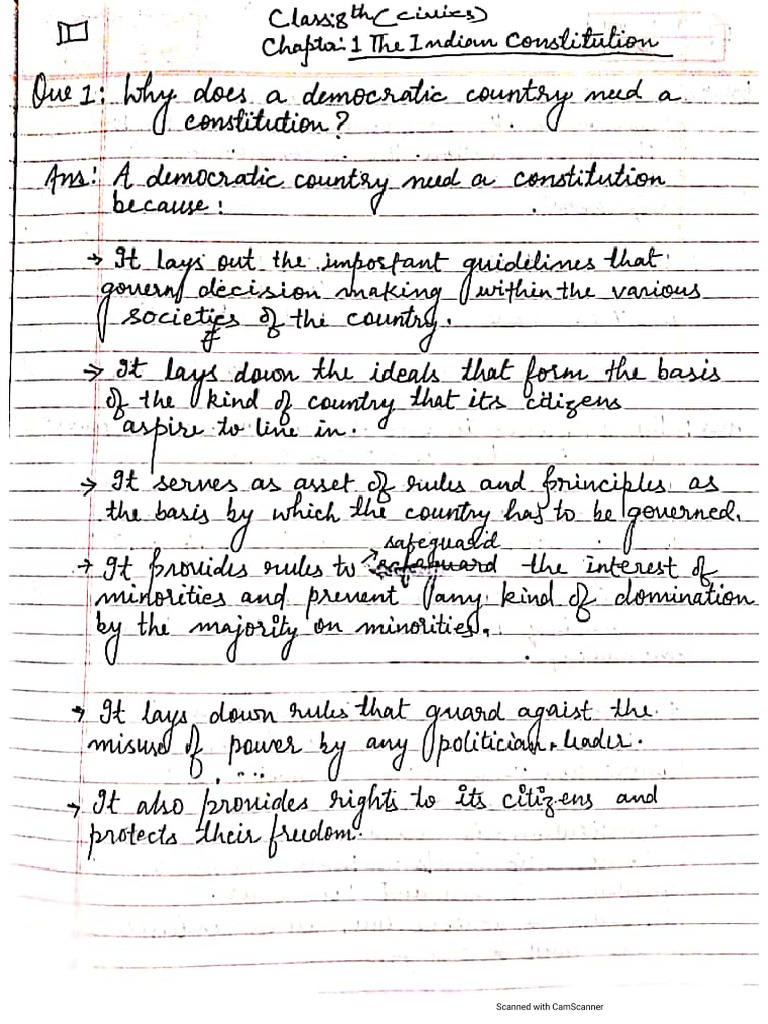 Class:8th (Civics)
Chapter: 1 The Indian Constitution
Que 1: Why does a democratic country need a
constitution?
Ans: A democratic country need a constitution
because:
→ It lays out the important guidelines that
govern decision making within the various
societies of the country.
→ It lays down the ideals that form the basis
of the kind of country that its citizens
aspire to live in.
→ It serves as asset of rules and principles as
the basis by which the country has to be governed.
safeguard
→ It provides rules to safeguard the interest of
minorities and prevent any kind of domination
by the majority on minorities.
→ It lays down rules that guard agaist the
misuse of power by any politician leader.
→ It also provides rights to its citizens and
protects their freedom.
Scanned with CamScanner